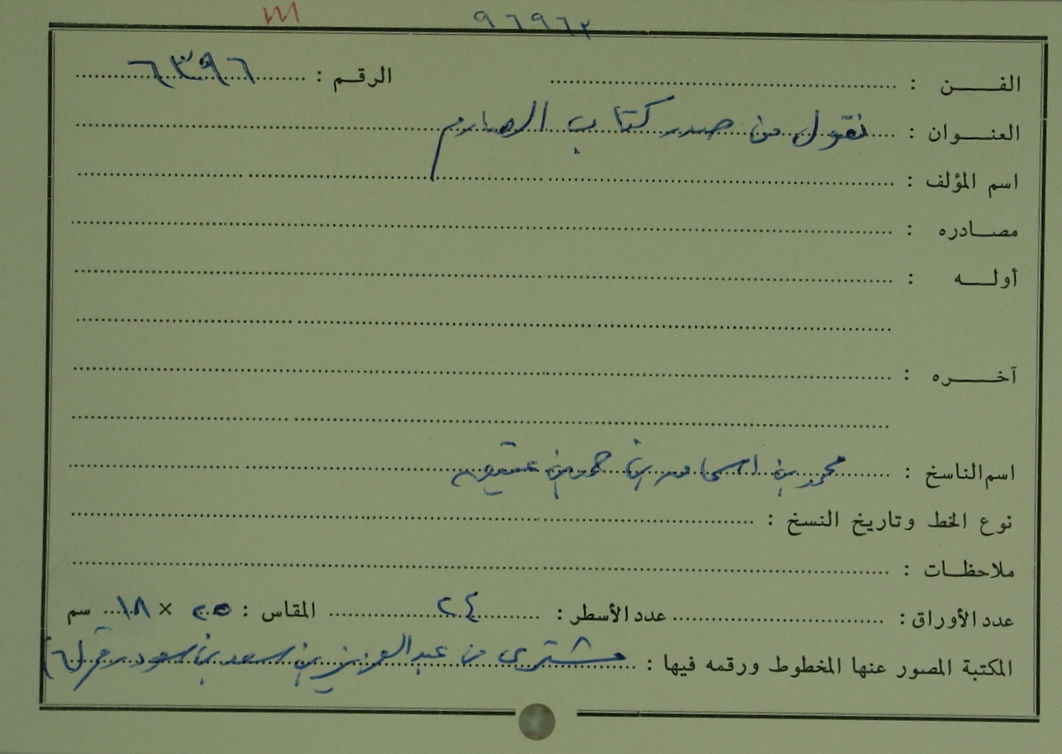 ٩٦٩٦٢
الفن : الرقم : ٦٣٩٦
العنوان : نقول من صدر كتاب الصارم
اسم المؤلف :
مصادره :
أوله :
آخره :
اسم الناسخ : محمد بن بن حمد بن عتيق
نوع الخط وتاريخ النسخ :
ملاحظات :
عدد الأوراق : عدد الأسطر : ٢٤ المقاس : ٢٥ × ١٨ سم
المكتبة المصور عنها المخطوط ورقمه فيها : مشترى من عبد العزيز بن سعد بن سعود